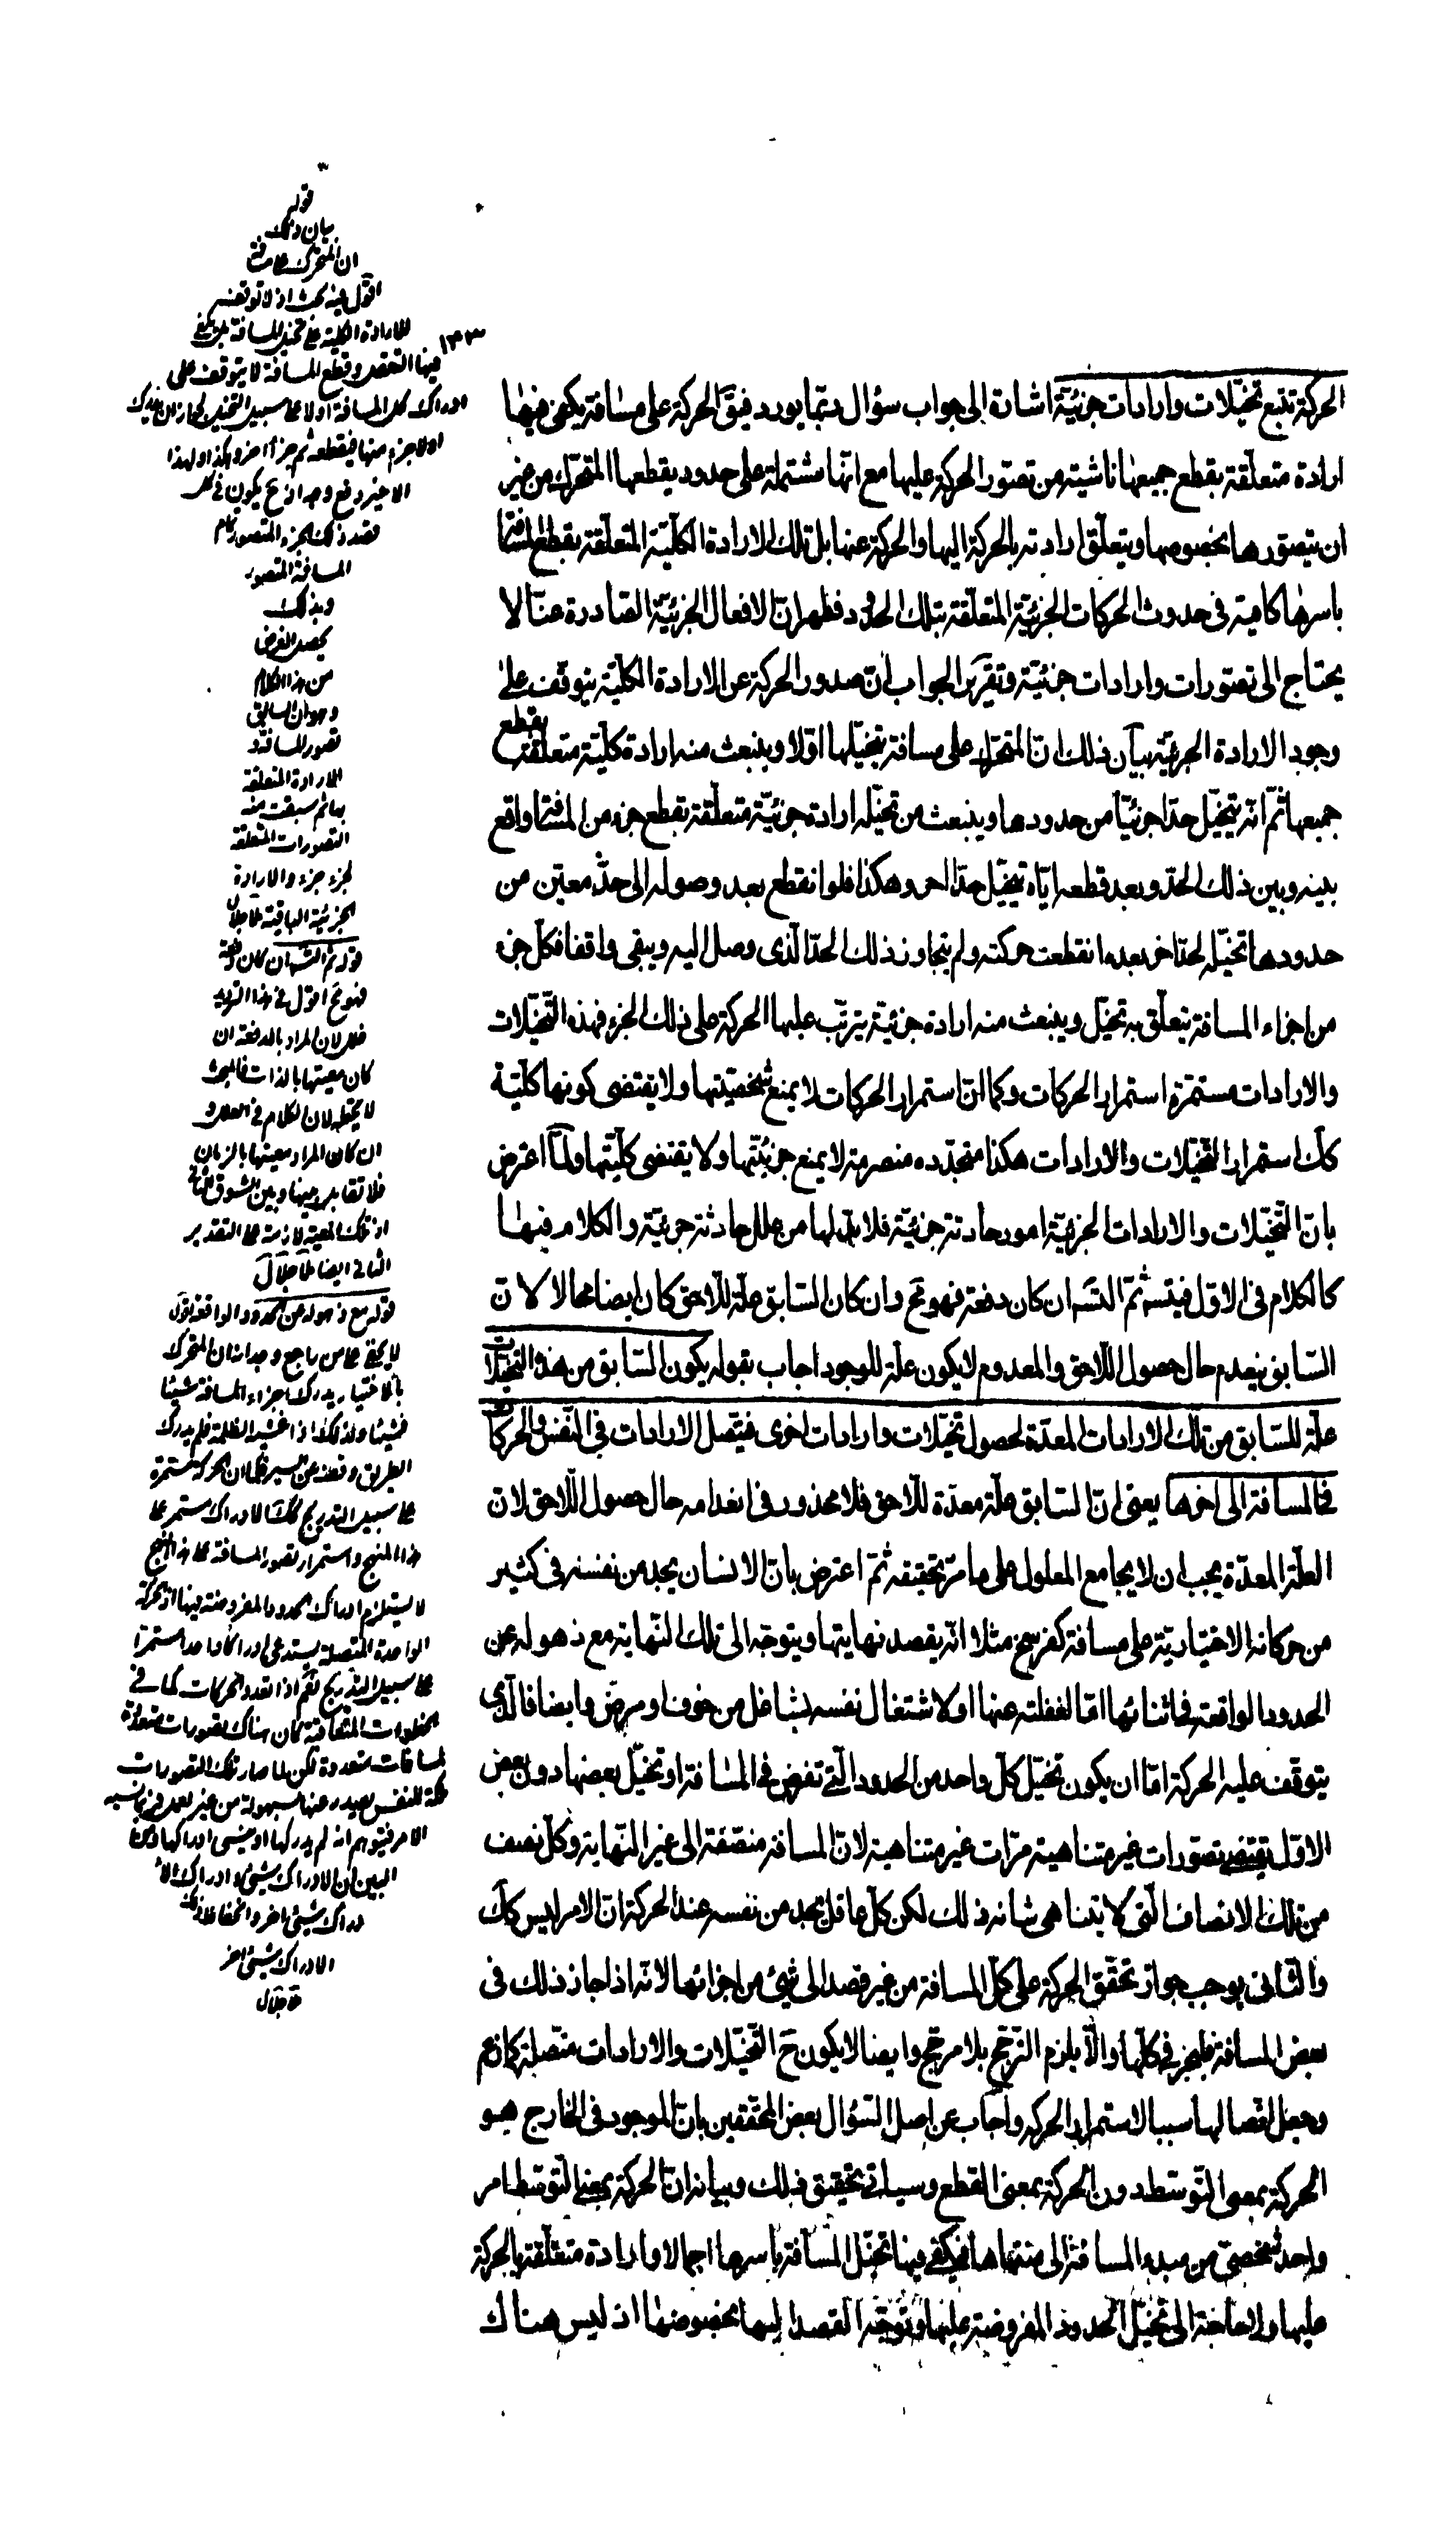 الحركة تتبع تخيّلات وارادات جزئيّة اشارة الى جواب سؤال ربّما يورد فيقٓ الحركة على مسافة يكفى فيها
ارادة متعلّقة بقطع جميعها ناشية من تصوّر الحركة عليها مع انّها مشتملة على حدود يقطعها المتحرّك من غير
ان يتصوّرها بخصوصها ويتعلّق ارادته بالحركة اليها والحركة عنها بل تلك الارادة الكلّيّة المتعلّقة بقطع المسافة
باسرها كافية فى حدوث الحركات الجزئيّة المتعلّقة بتلك الحدود فظهر انّ الافعال الجزئيّة الصّادرة عنّا لا
يحتاج الى تصوّرات وارادات جزئيّة وتقرير الجواب انّ صدور الحركة عن الارادة الكلّيّة يتوقّف على
وجود الارادة الجزئيّة بيان ذلك انّ المتحرّك على مسافة يتخيّلها اوّلا وينبعث منه ارادة كلّيّة متعلّقة بقطع
جميعها ثمّ انّه يتخيّل حدّا جزئيّا من حدودها وينبعث من تخيّله ارادة جزئيّة متعلّقة بقطع جزء من المسافة واقع
بينه وبين ذلك الحدّ وبعد قطعه ايّاه يتخيّل حدّا اخر وهكذا فلو انقطع بعد وصوله الى حدّ معيّن من
حدودها تخيّله لحدّ اخر بعده انقطعت حركته ولم يتجاوز ذلك الحدّ الّذى وصل اليه ويبقى واقفا فكلّ جزء
من اجزاء المسافة يتعلّق به تخيّل وينبعث منه ارادة جزئيّة يترتّب عليها الحركة على ذلك الجزء فهذه التّخيّلات
والارادات مستمرّة استمرار الحركات وكما انّ استمرار الحركات لا يمنع شخصيّتها ولا يقتضى كونها كلّيّة
كك استمرار التّخيّلات والارادات هكذا متجدّده منصرمة لا يمنع جزئيّتها ولا يقتضى كلّيّتها ولمّا اعترض
بانّ التّخيّلات والارادات الجزئيّة امور حادثة جزئيّة فلا بدّ لها من علل حادثة جزئيّة والكلام فيها
كالكلام فى الاوّل فيتسه ثمّ التسه ان كان دفعة فهو مح وان كان السّابق علّة للّاحق كان ايضا محالا لانّ
السّابق ينعدم حال حصول اللّاحق والمعدوم لا يكون علّة للوجود اجاب بقوله يكون السّابق من هذه التّخيّلات
علّة للسّابق من تلك الارادات المعدّة لحصول تخيّلات وارادات اخرى فيتّصل الارادات فى النّفس والحركات
فى المسافة الى اخرها يعنى انّ السّابق علّة معدّة للّاحق فلا محذور فى انعدامه حال حصول اللّاحق لانّ
العلّة المعدّة يجب ان لا يجامع المعلول على ما مرّ تحقيقه ثمّ اعترض بانّ الانسان يجد من نفسه فى كثير
من حركاته الاختياريّة على مسافة كفرسخ مثلا انّه يقصد نهايتها ويتوجّه الى تلك النّهاية مع ذهوله عن
الحدود الواقعة فى اثنائها امّا لغفلته عنها او لاشتغال نفسه بشاغل من خوف او مرض وايضا فالّذى
يتوقّف عليه الحركة امّا ان يكون تخيّل كلّ واحد من الحدود الّتى تفرض فى المسافة او تخيّل بعضها دون بعض
الاوّل يقتضى تصوّرات غير متناهية مرّات غير متناهية لانّ المسافة منصّفة الى غير النّهاية وكلّ نصف
من تلك الانصاف الّتى لا يتناهى شانه ذلك لكن كلّ عاقل يجد من نفسه عند الحركة انّ الامر ليس كك
والثّانى يوجب جواز تحقّق الحركة على كلّ المسافة من غير قصد الى شئ من اجزائها لانّه اذا جاز ذلك فى
بعض المسافة فليجز فى كلّها والّا يلزم التّرجّح بلا مرجّح وايضا لا يكون ح التّخيّلات والارادات متّصلة كما زعم
وجعل اتّصالها سببا لاستمرار الحركة واجاب عن اصل السّؤال بعض المحقّقين بانّ الموجود فى الخارج هو
الحركة بمعنى التّوسّط دون الحركة بمعنى القطع وسياتى تحقيق ذلك وبيانه انّ الحركة بمعنى التّوسّط امر
واحد شخصىّ من مبدء المسافة الى منتهاها فيكفى فيها تخيّل المسافة باسرها اجمالا وارادة متعلّقة بالحركة
عليها ولا حاجة الى تخيّل الحدود المفروضة عليها وتوجّه القصد اليها بخصوصها اذ ليس هناك
١٣٣
قوله
بيان ذلك
ان المتحرك على مسافة
اقول فيه بحث اذ لا توقف
للارادة الكلية على تخيل المسافة بل يكفى
فيها التعقل وقطع المسافة لا يتوقف على
ادراك كل المسافة اولا على سبيل التخيل لجواز ان يدرك
اولا جزء منها فيقطعه ثم جزأ اخر وهكذا ولهذا
الاخير دفع وجه اذ ح يكون فى كل
قصد ذلك الجزء المتصور تمام
المسافة المتصور
وبذلك
يحصل الغرض
من هذا الكلام
وهو ان السابق
تصور المسافة و
الارادة المتعلقة
بها ثم سبقت منه
التصورات المتعلقة
لجزء جزء والارادة
الجزئية الباقية
قوله ثم التسه ان كان دفعة
فهو مح اقول فى هذا الترديد
لان المراد بالدفعة ان
كان معيتها بالذات فالبحث
لا يختل لان الكلام فى العلل و
ان كان المراد معيتها بالزمان
فلا تقابل بينها وبين الشوق الثانى
اذ تلك المعية لازمة على التقدير
الثانى ايضا
قوله مع ذهوله عن الحدود الواقعة اقول
لا يخفى على من راجع وجدانه ان المتحرك
بالاختيار يدرك اجزاء المسافة شيئا
فشيئا ولذلك اذا غشيه الظلمة فلم يدرك
الطريق وقف عن السير فكما ان الحركة مستمرة
على سبيل التدريج كك الادراك مستمر على
هذا المنهج واستمرار تصور المسافة على هذا النهج
لا يستلزم ادراك الحدود المفروضة فيها اذ الحركة
الواحدة المتصلة يستدعى ادراكا واحدا مستمرا
على سبيل التدريج نعم اذا تعدد الحركات كما فى
الخطوات المتعاقبة كان هناك تصورات متعددة
لمسافات متعددة لكن لما صار تلك التصورات
ملكة للنفس يصدر عنها بسهولة من غير
الامر فيتوهم انه لم يدركها او ينسى ادراكها ومن
البين ان الادراك شئ وادراك الا
دراك شئ اخر
الادراك شئ اخر